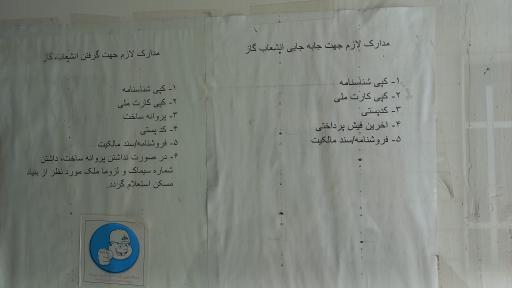 مدارک لازم جهت جابه جایی انشعاب گاز
۱- کپی شناسنامه
۲- کپی کارت ملی
۳- کدپستی
۴- اخرین فیش پرداختی
۵- فروشنامه/سند مالکیت
مدارک لازم جهت گرفتن انشعاب گاز
۱- کپی شناسنامه
۲- کپی کارت ملی
۳- پروانه ساخت
۴- کد پستی
۵- فروشنامه/سند مالکیت
۶- در صورت نداشتن پروانه ساخت، داشتن
شماره سیماک و لزوما ملک مورد نظر از بنیاد
مسکن استعلام گردد.